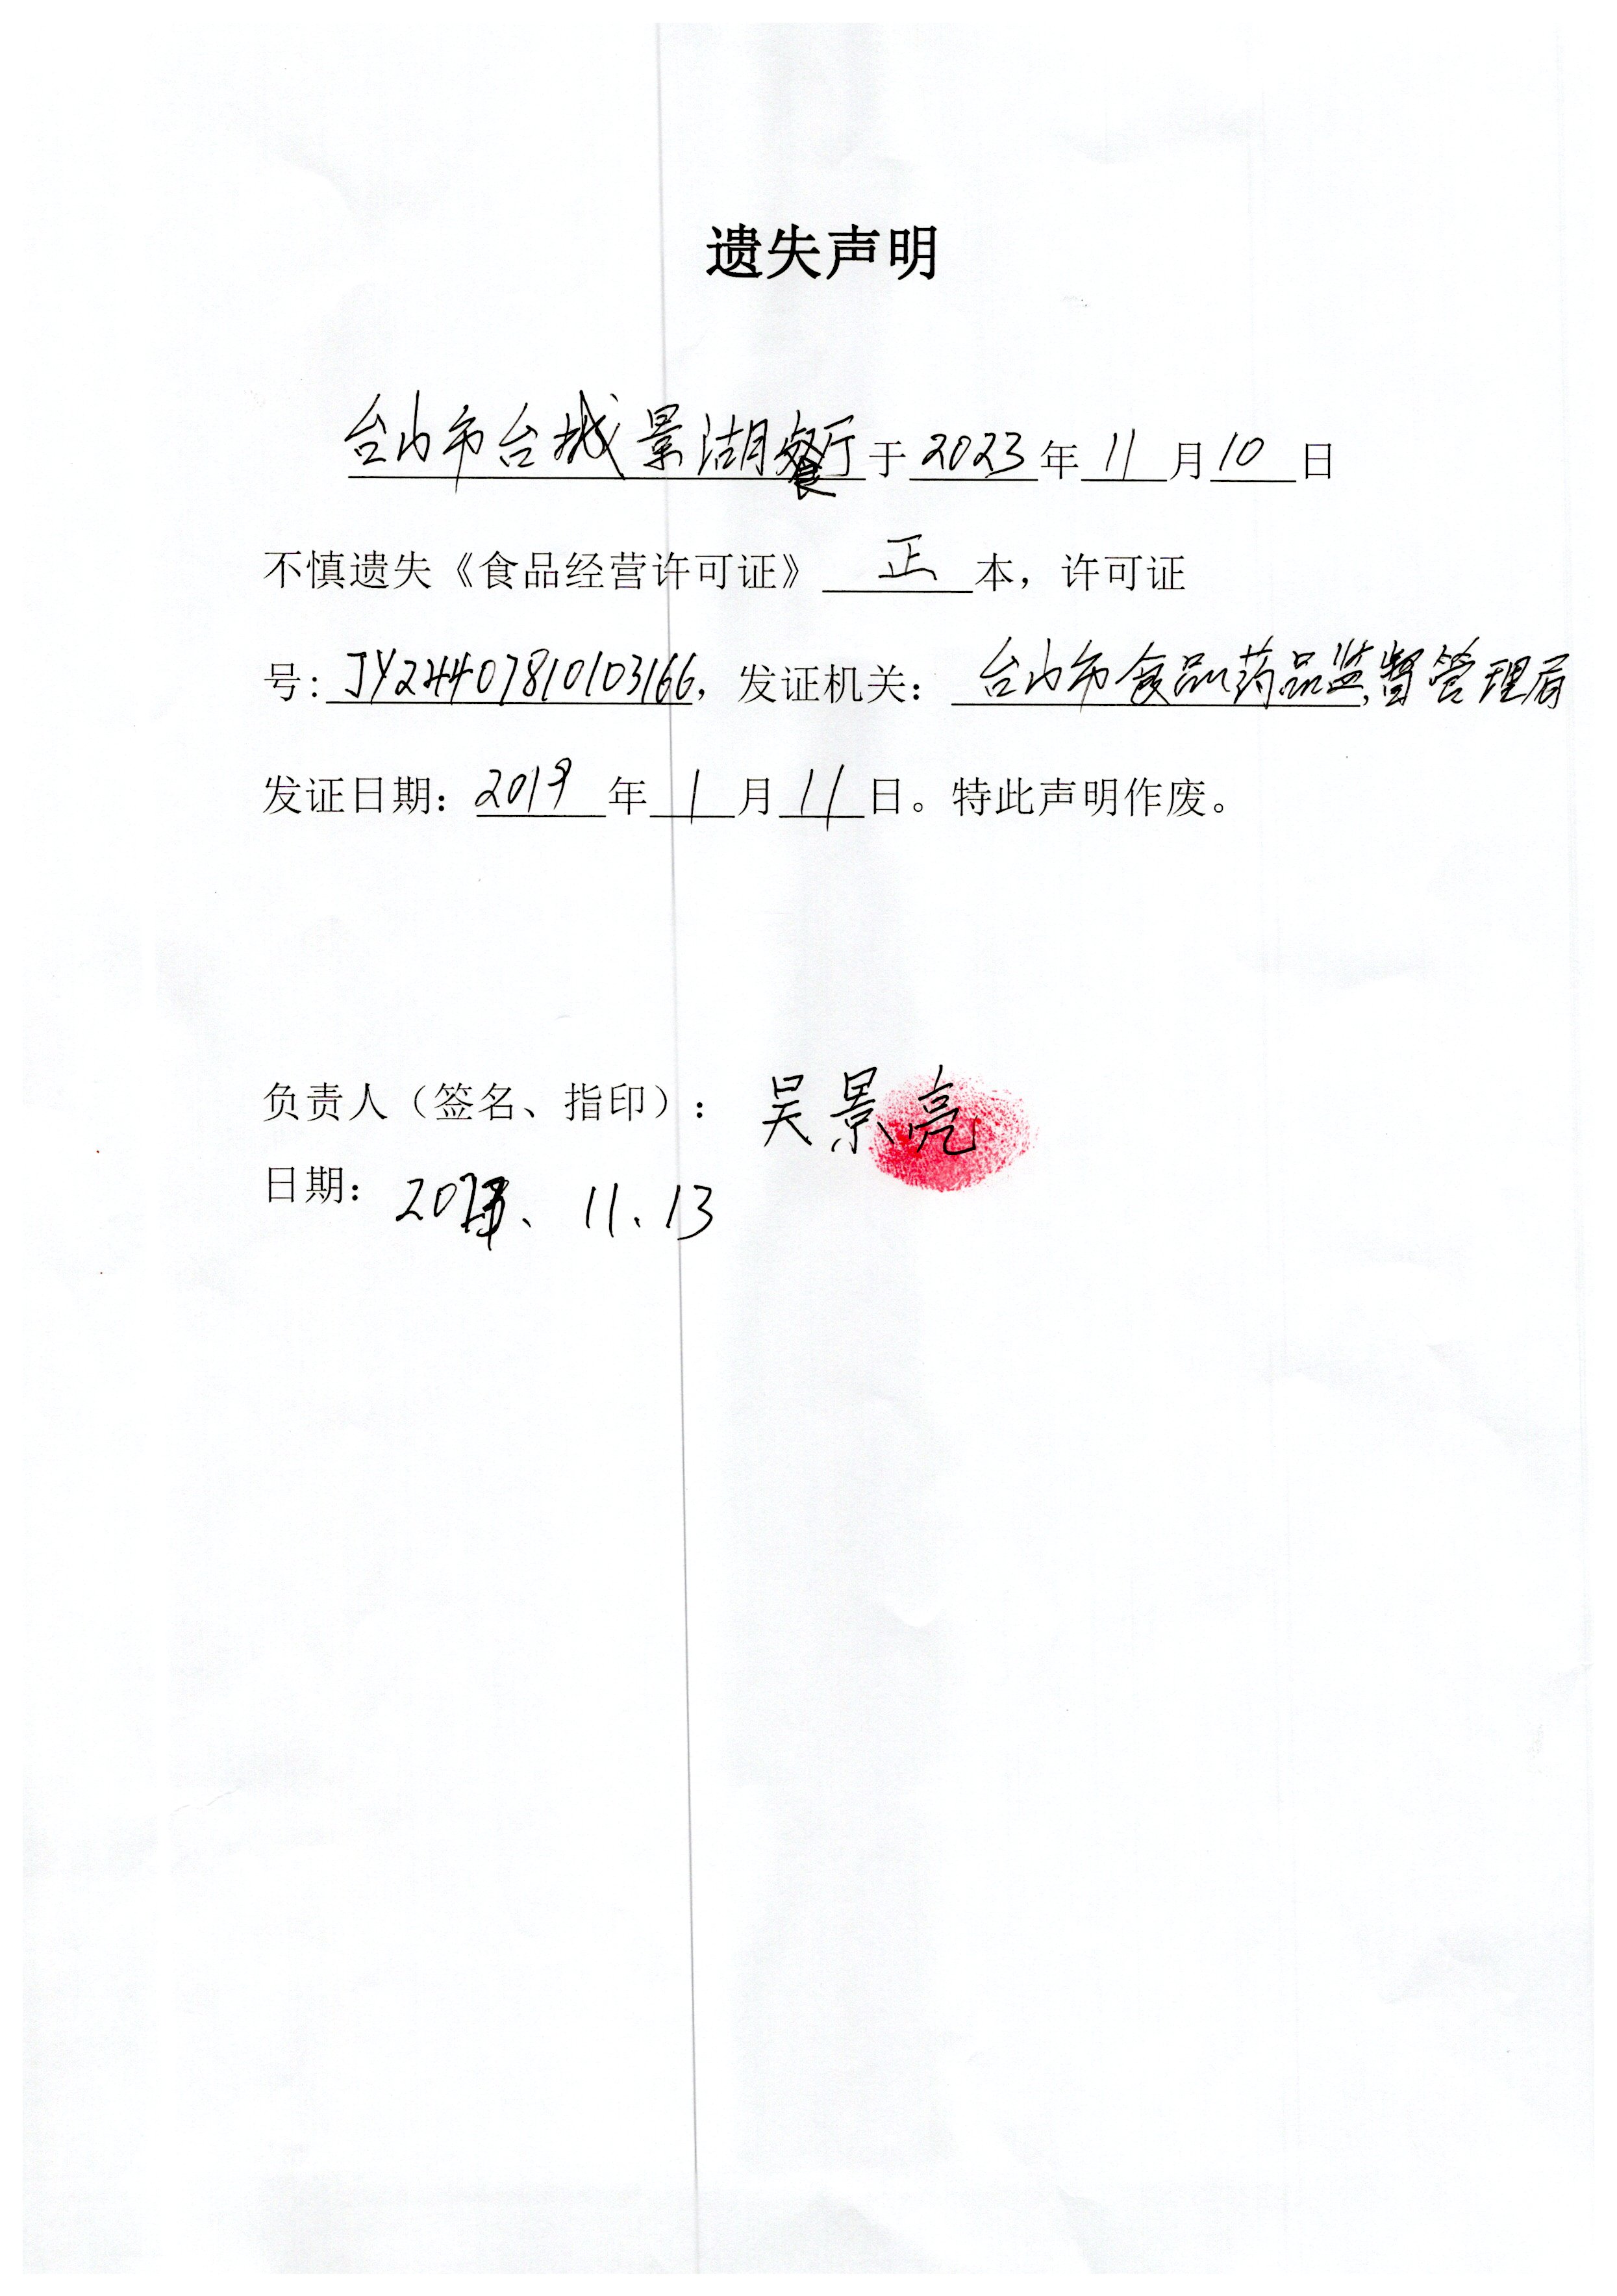 遗失声明
台山市台城景湖餐厅于2023年11月10日
不慎遗失《食品经营许可证》正本，许可证
号：JY24407810103166，发证机关：台山市食品药品监督管理局
发证日期：2019年1月11日。特此声明作废。
负责人（签名、指印）：吴景亮
日期：2023、11.13